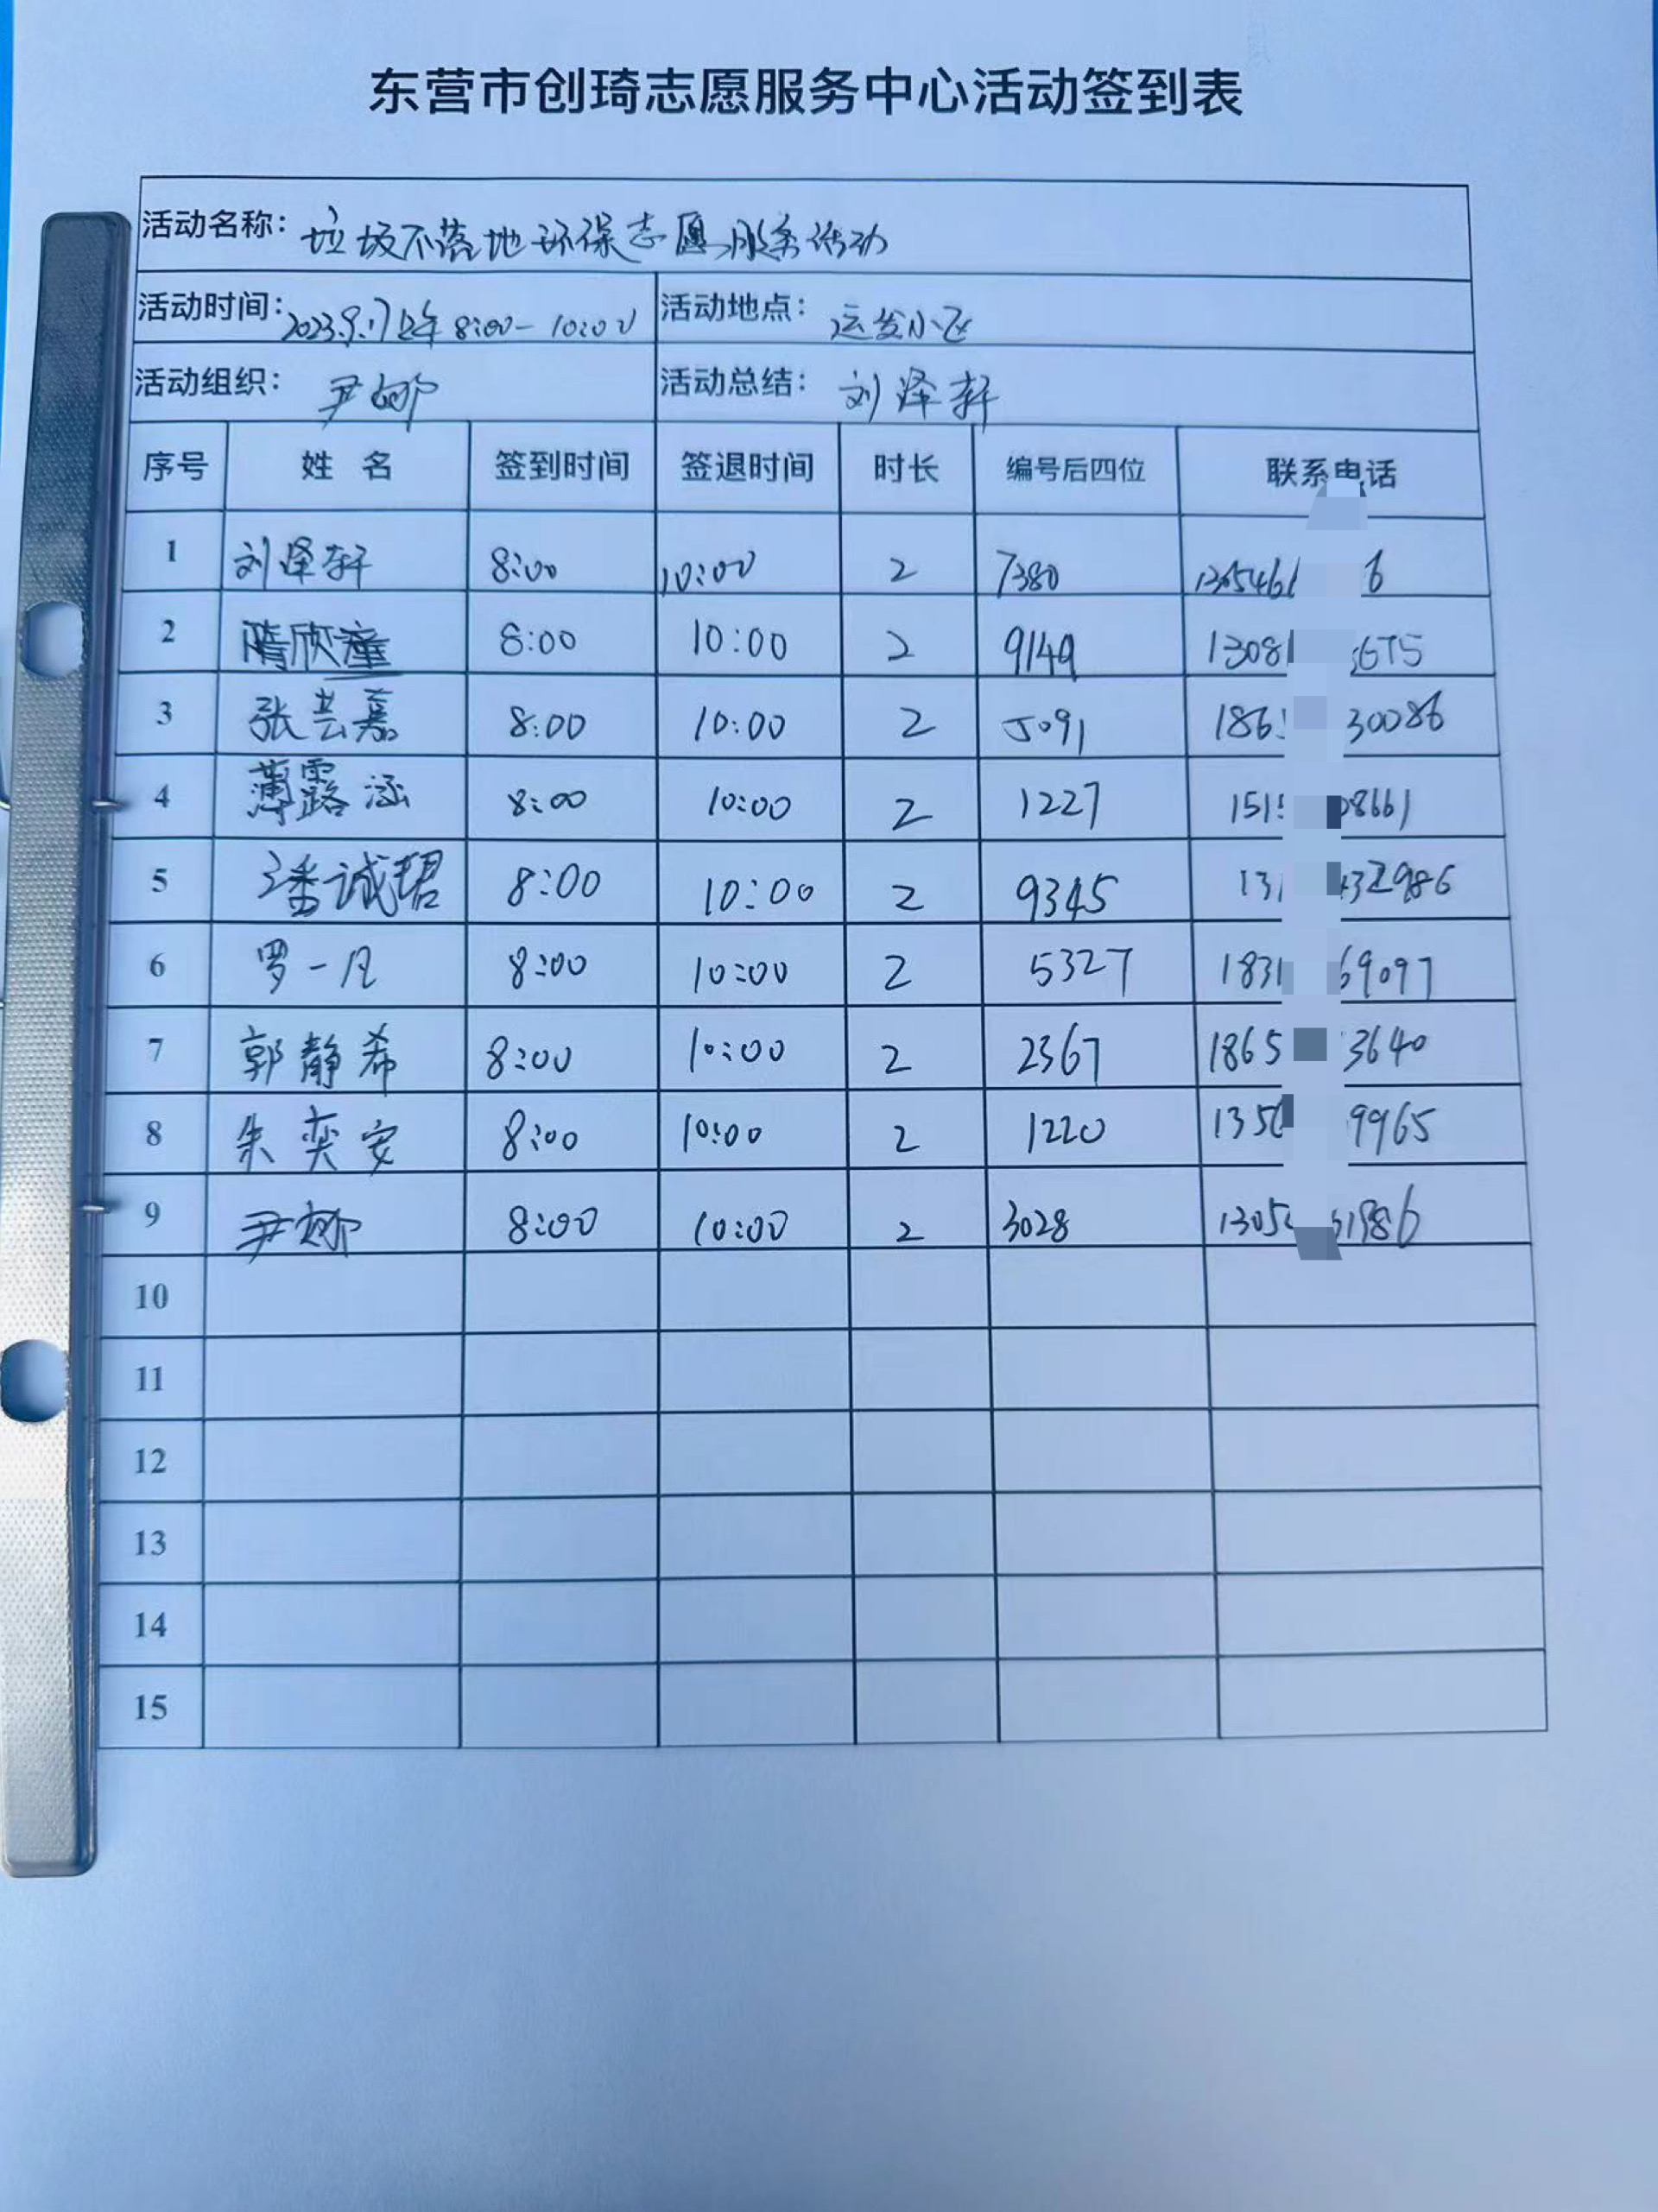 东营市创琦志愿服务中心活动签到表
活动名称：垃圾不落地环保志愿服务活动
活动时间：2023.9.17上午8:00-10:00 活动地点：运发小区
活动组织：尹娜 活动总结：刘泽轩
序号 姓名 签到时间 签退时间 时长 编号后四位 联系电话
1 刘泽轩 8:00 10:00 2 7380 1305461 6
2 隋欣童 8:00 10:00 2 9149 1308 675
3 张芸嘉 8:00 10:00 2 5091 186 30086
4 薄露涵 8:00 10:00 2 1227 151 08661
5 潘诚珺 8:00 10:00 2 9345 13 432986
6 罗一凡 8:00 10:00 2 5327 183 69097
7 郭静希 8:00 10:00 2 2367 1865 3640
8 朱奕安 8:00 10:00 2 1220 135 9965
9 尹娜 8:00 10:00 2 3028 1305 1986
10
11
12
13
14
15